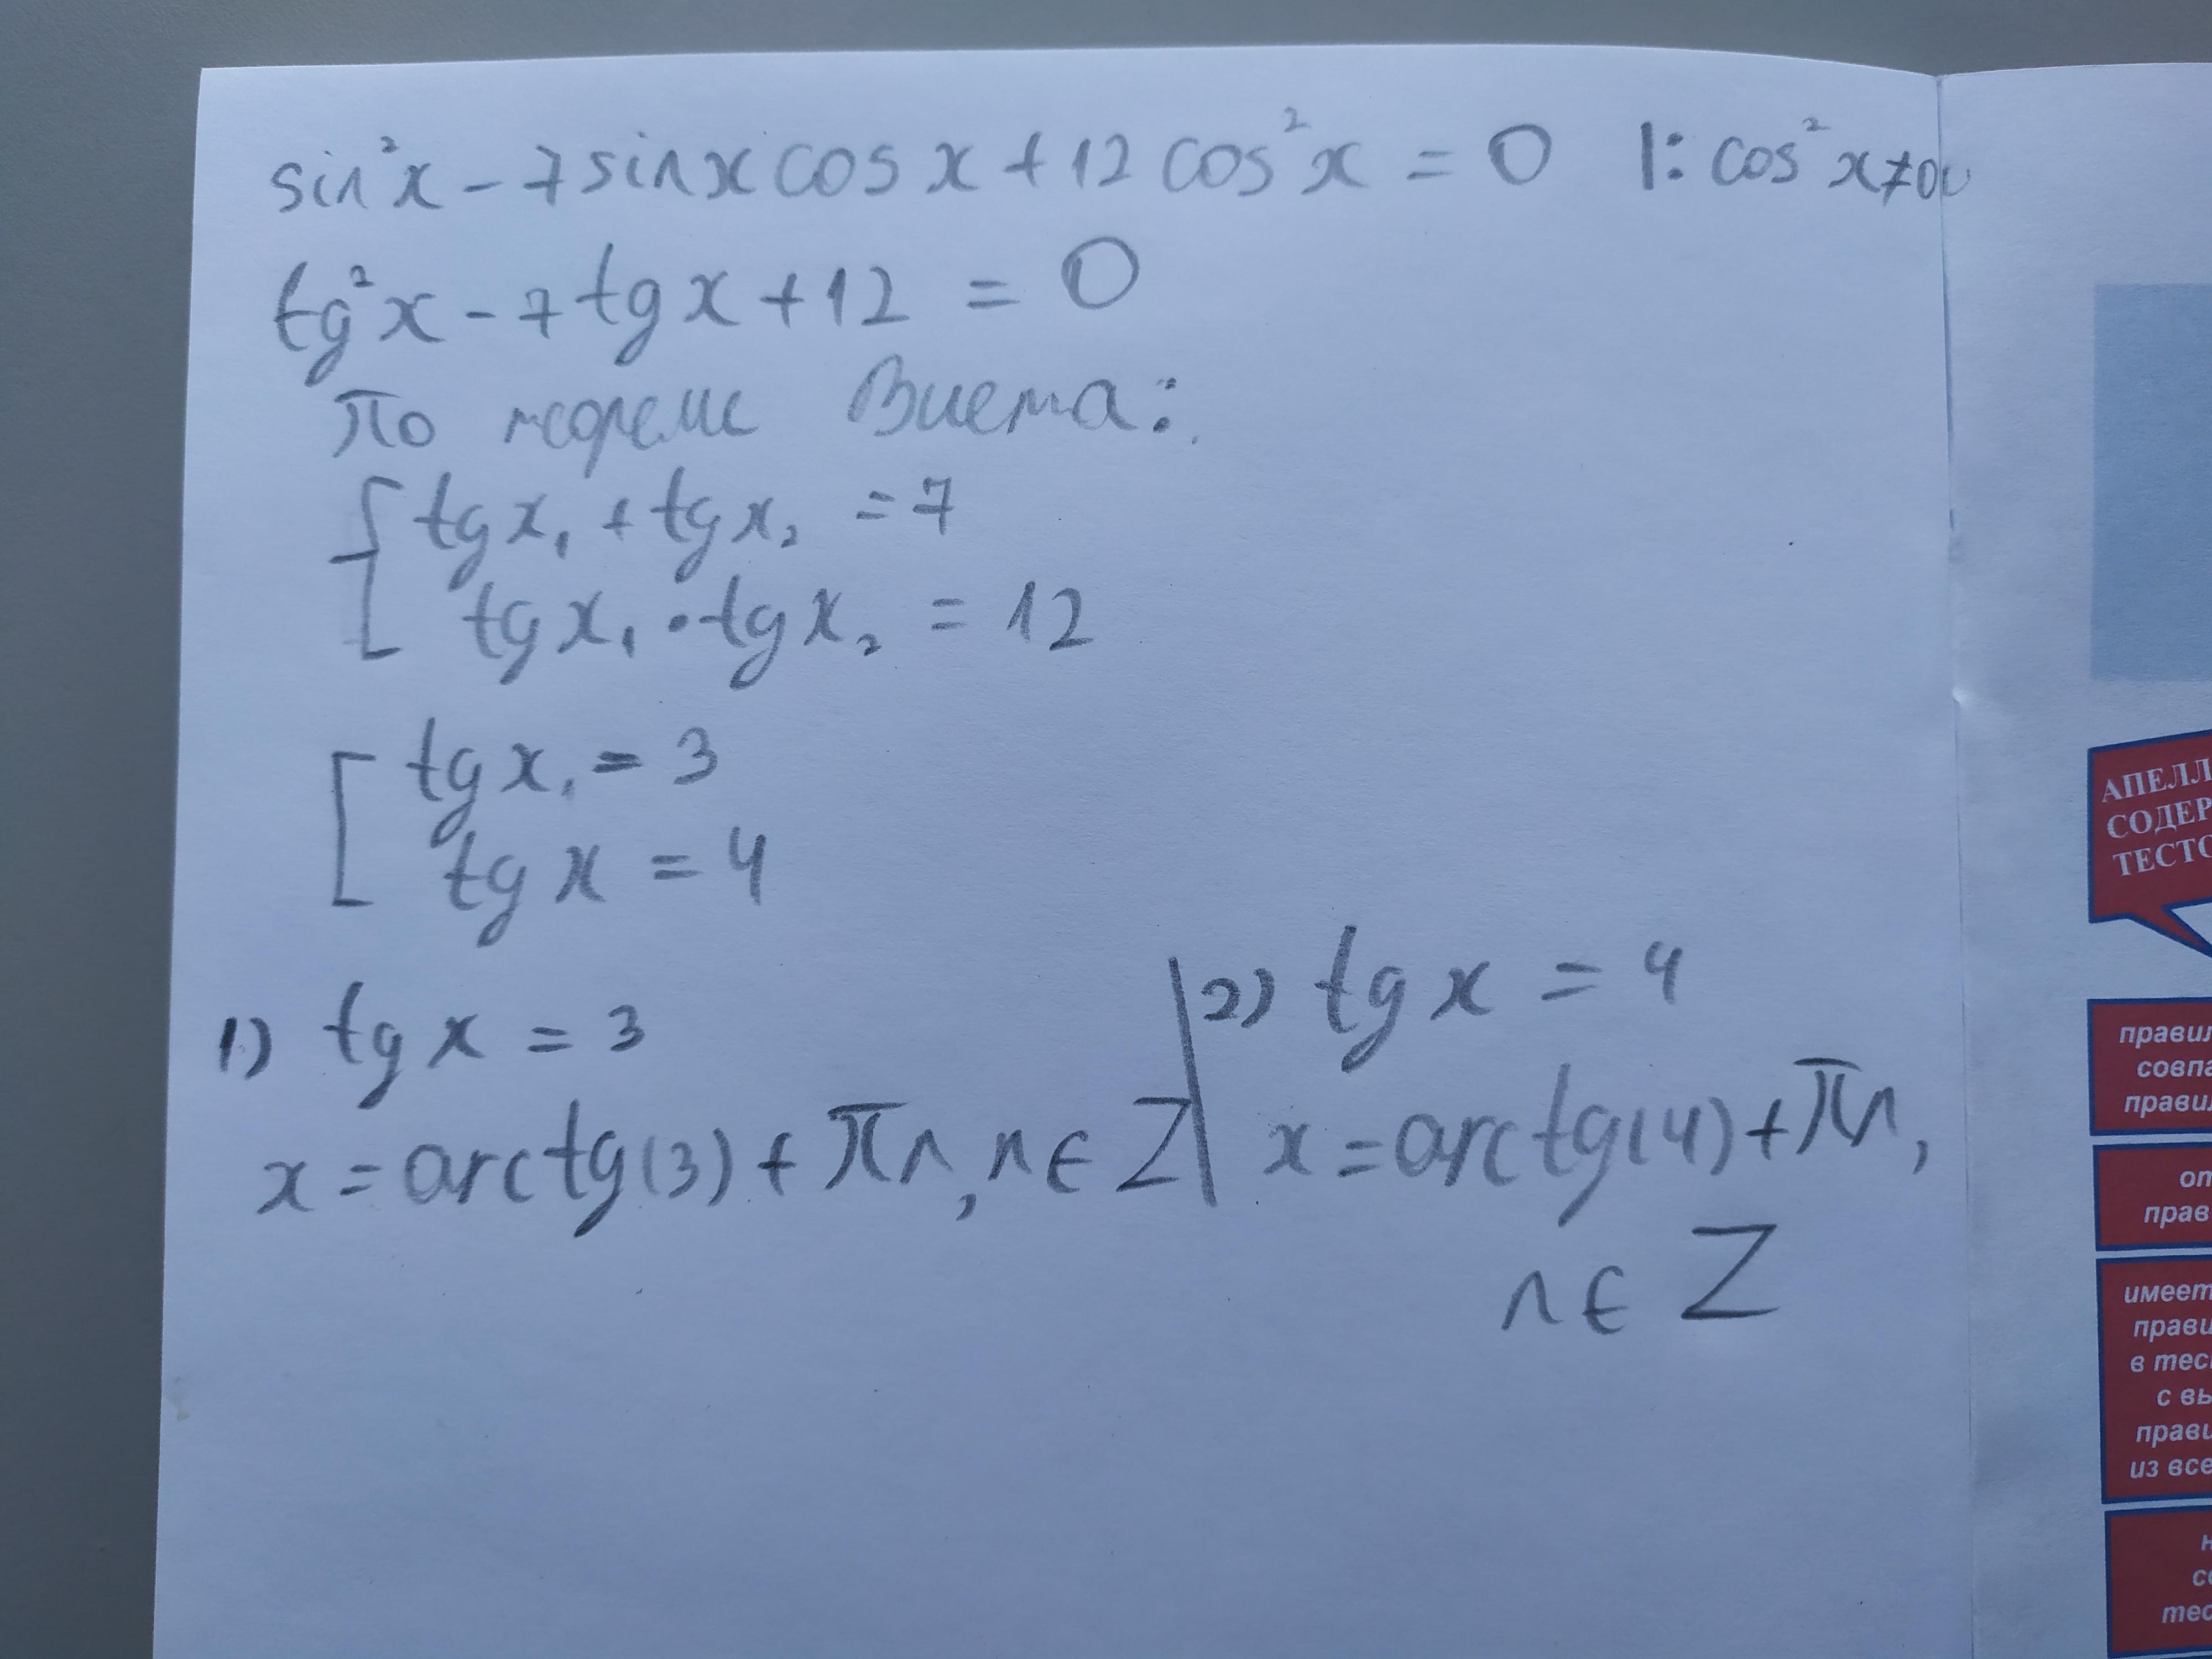 sin²x - 7 sin x cos x + 12 cos²x = 0 |: cos²x ≠ 0
tg²x - 7 tg x + 12 = 0
По теореме Виета:
{ tg x₁ + tg x₂ = 7
tg x₁ · tg x₂ = 12
[ tg x₁ = 3
tg x = 4
1) tg x = 3
x = arctg(3) + πn, n ∈ Z
2) tg x = 4
x = arctg(4) + πn,
n ∈ Z
АПЕЛЛ
СОДЕР
ТЕСТО
правил
совпа
правил
от
прав
имеет
прави
в тес
с вы
прави
из все
н
со
тес